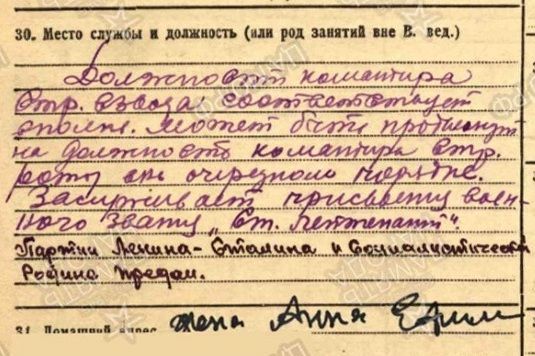 30. Место службы и должность (или род занятий вне В. вед.)
Должност комантира
стр. взвода соответствует
вполне. Может быть протвенут
на должность командира стр.
роты в очередном порядке.
Заслуживает присвоения воен-
ного звания „Ст. лейтенант".
Партии Ленина-Сталина и Социалистической
Родине предан.
31. Домашний адрес жена Анна Ефим